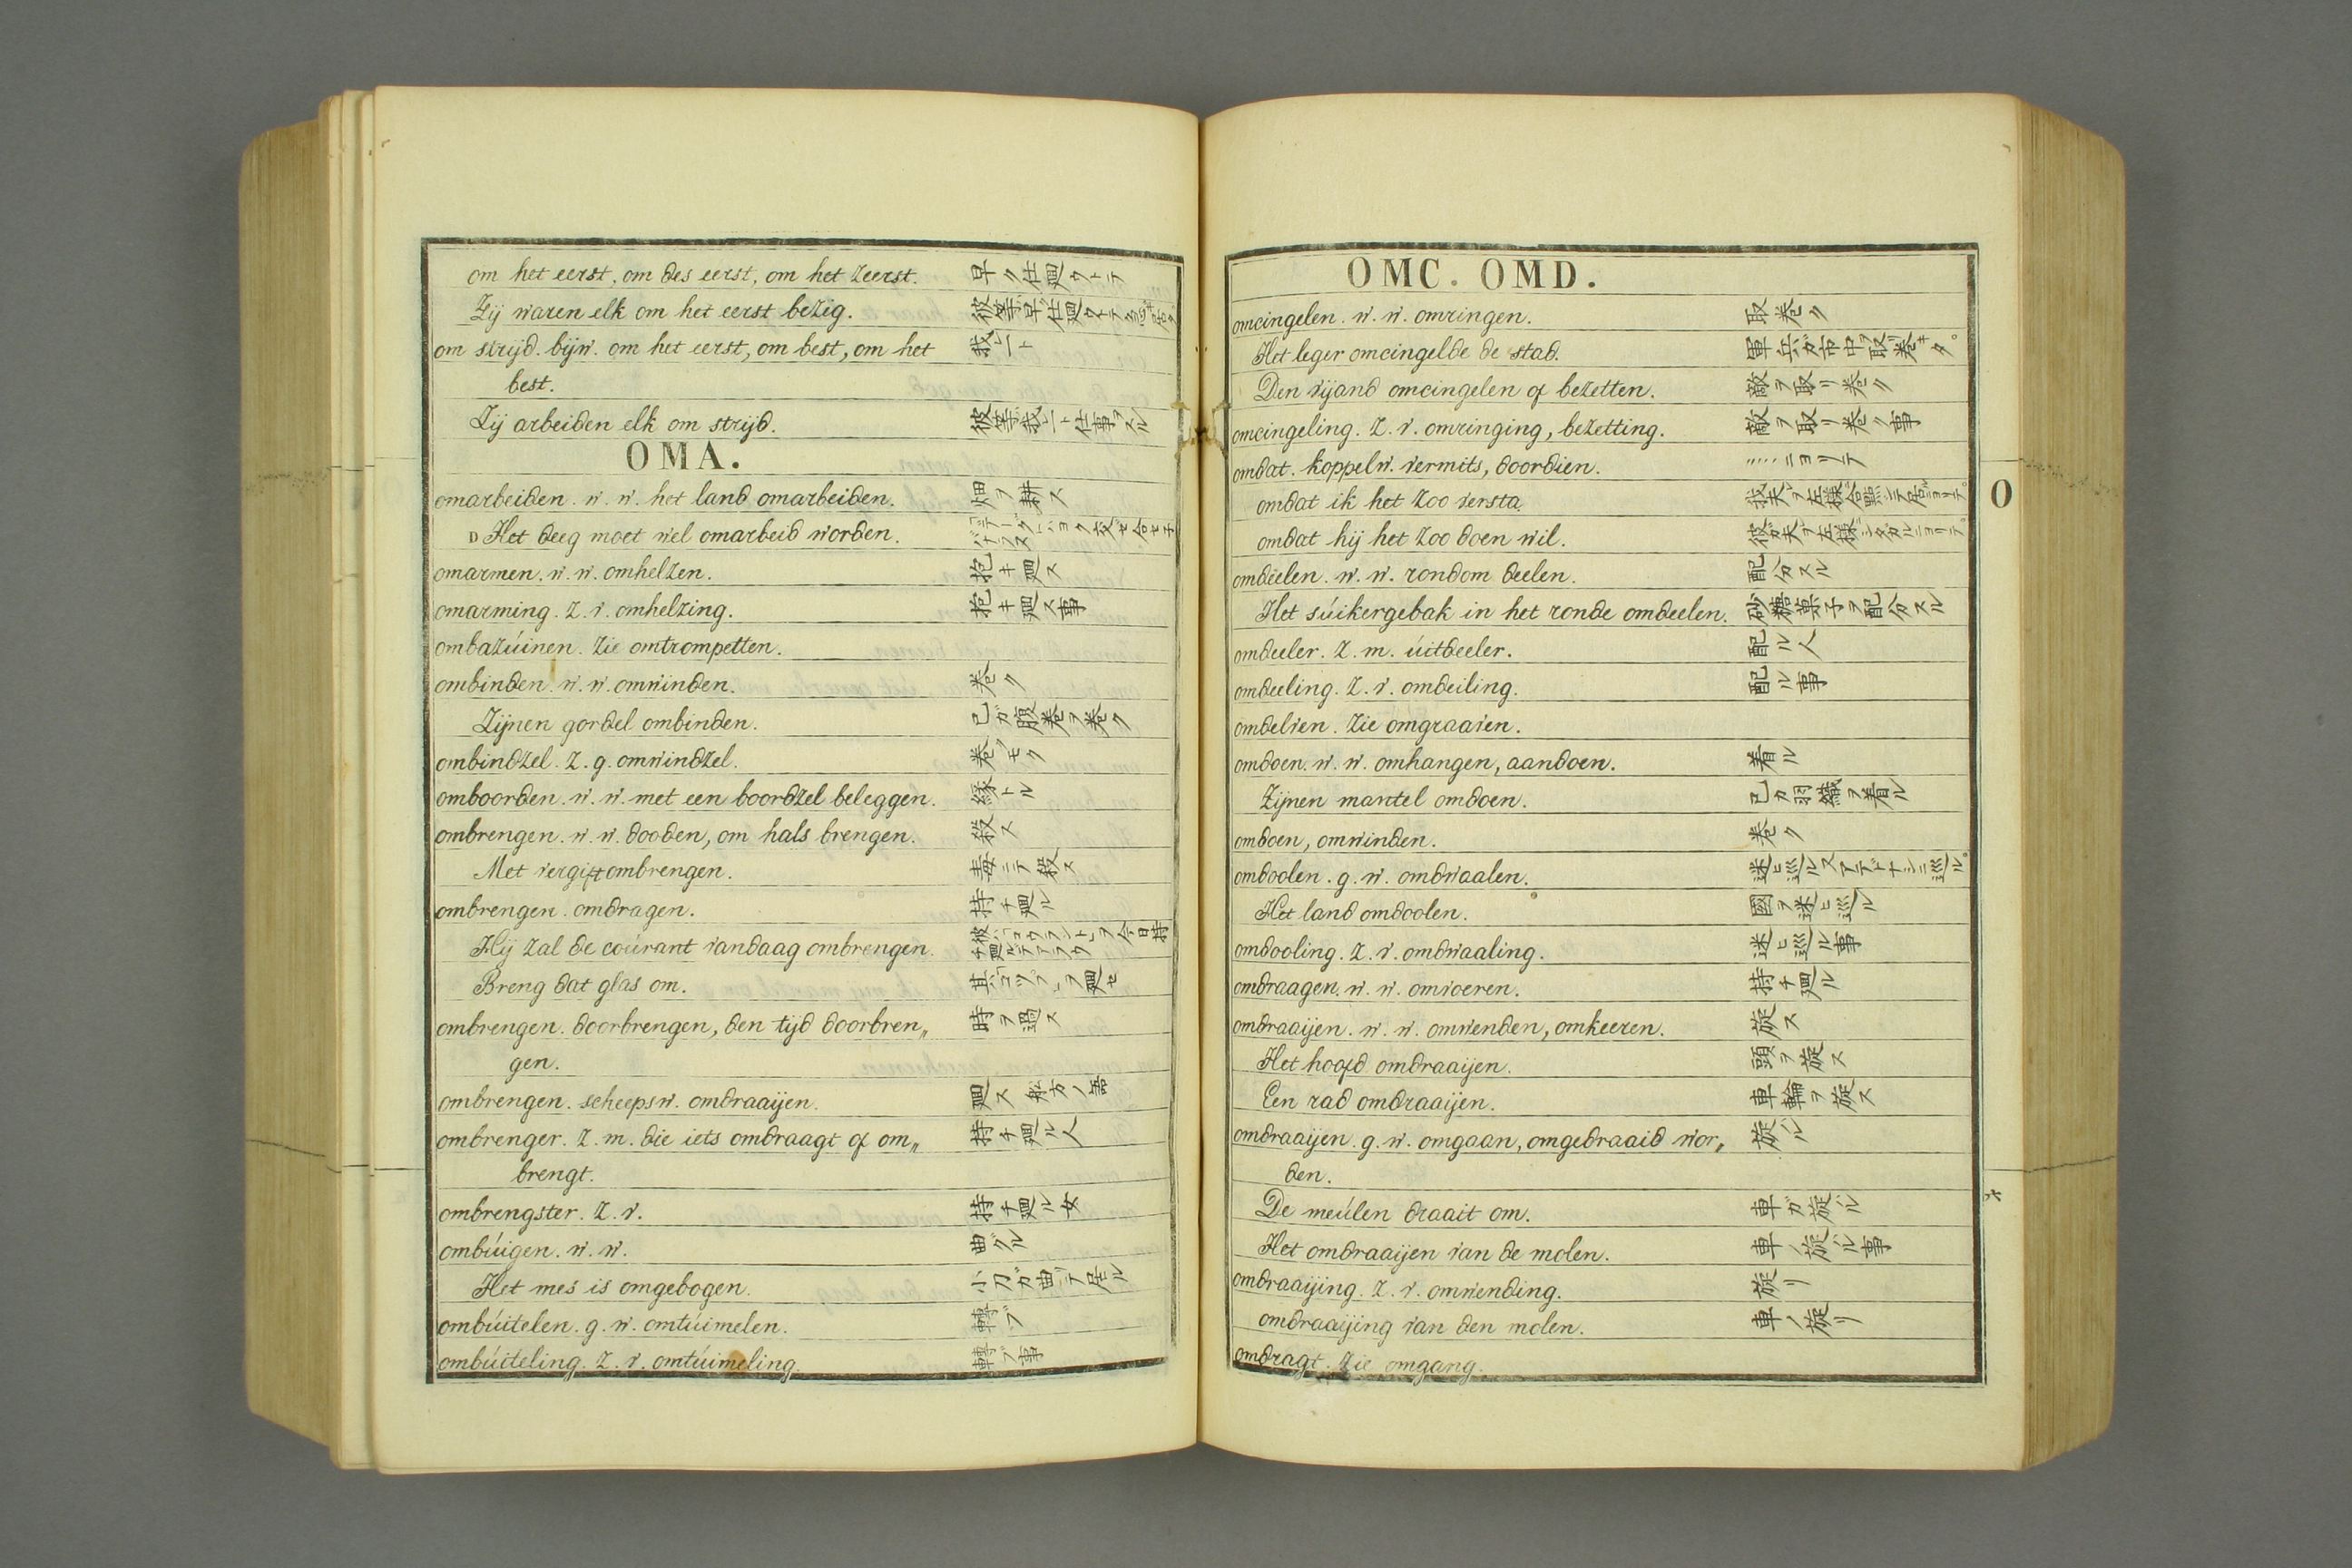 om het eerst, om des eerst, om het zeerst. 早ク仕廻ウトテ
Zij waren elk om het eerst bezig.
om strijd. bijw. om het eerst, om best, om het 我一ト
best.
Zij arbeiden elk om strijd. 彼等我一ト仕事ヲスル
OMA.
omarbeiden. w. w. het land omarbeiden. 畑ヲ耕ス
D Het deeg moet wel omarbeid worden.
omarmen. w. w. omhelzen. 抱キ廻ス
omarming. z. v. omhelzing. 抱キ廻ス事
ombazúinen. zie omtrompetten.
ombinden. w. w. omwinden. 巻ク
Zijnen gordel ombinden. 已ガ腹巻ヲ巻ク
ombindzel. z. g. omwindzel. 巻クモノ
omboorden. w. w. met een boordzel beleggen. 縁トル
ombrengen. w. w. dooden, om hals brengen. 殺ス
Met vergift ombrengen. 毒ニテ殺ス
ombrengen. omdragen. 持チ廻ル
Hij zal de coúrant vandaag ombrengen.
Breng dat glas om. 其「コップ」ヲ廻セ
ombrengen. doorbrengen, den tijd doorbren„ 時ヲ過ス
gen.
ombrengen. scheepsw. omdraaijen. 廻ス 舩方ノ語
ombrenger. z. m. die iets omdraagt of om„ 持チ廻ル人
brengt.
ombrengster. z. v. 持チ廻ル女
ombúigen. w. w. 曲グル
Het mes is omgebogen. 小刀ガ曲リテ居ル
ombúitelen. g. w. omtúimelen. 轉ブ
ombúiteling. z. v. omtúimeling. 轉ブ事
OMC. OMD.
omcingelen. w. w. omringen. 取巻ク
Het leger omcingelde de stad. 軍兵ガ市中ヲ取リ巻キタ。
Den vijand omcingelen of bezetten. 敵ヲ取リ巻ク
omcingeling. z. v. omringing, bezetting. 敵ヲ取リ巻ク事
omdat. koppelw. vermits, doordien. ....ニヨリテ
omdat ik het zoo versta.
omdat hij het zoo doen wil.
omdeelen. w. w. rondom deelen. 配分スル
Het súikergebak in het ronde omdeelen. 砂糖菓子ヲ配分スル
omdeeler. z. m. úitdeeler. 配ル人
omdeeling. z. v. omdeiling. 配ル事
omdelven. zie omgraaven.
omdoen. w. w. omhangen, aandoen. 着ル
Zijnen mantel omdoen. 已ガ羽織ヲ着ル
omdoen, omwinden. 巻ク
omdoolen. g. w. omdwaalen.
Het land omdoolen. 國ヲ迷ヒ巡ル
omdooling. z. v. omdwaaling. 迷ヒ巡ル事
omdraagen. w. w. omvoeren. 持チ廻ル
omdraaijen. w. w. omwenden, omkeeren. 旋ス
Het hoofd omdraaijen. 頭ヲ旋ス
Een rad omdraaijen. 車輪ヲ旋ス
omdraaijen. g. w. omgaan, omgedraaid wor„ 旋ル
den.
De meúlen draait om. 車ガ旋ル
Het omdraaijen van de molen. 車ノ旋ル事
omdraaijing. z. v. omwending. 旋リ
omdraaijing van den molen. 車ノ旋リ
omdragt. zie omgang.
O